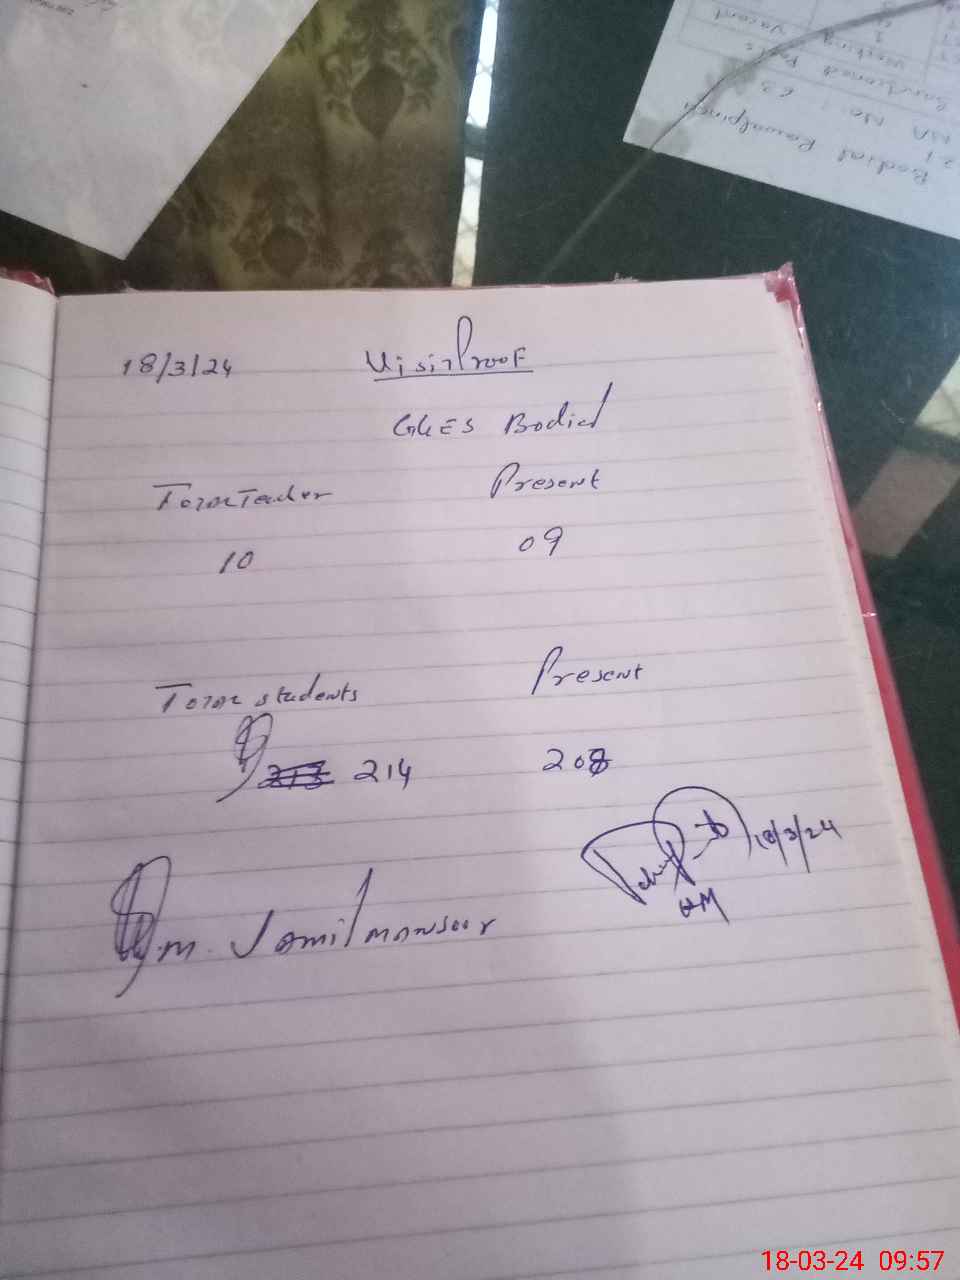 18/3/24 Visit Proof
GGES Bodial
Total Teacher Present
10 09
Total students Present
213 214 208
18/3/24
HM
M. Jamil mansoor
Bodial Rawalpindi
NA No : 53
Sanctioned Posts
Working Vacant
18-03-24 09:57